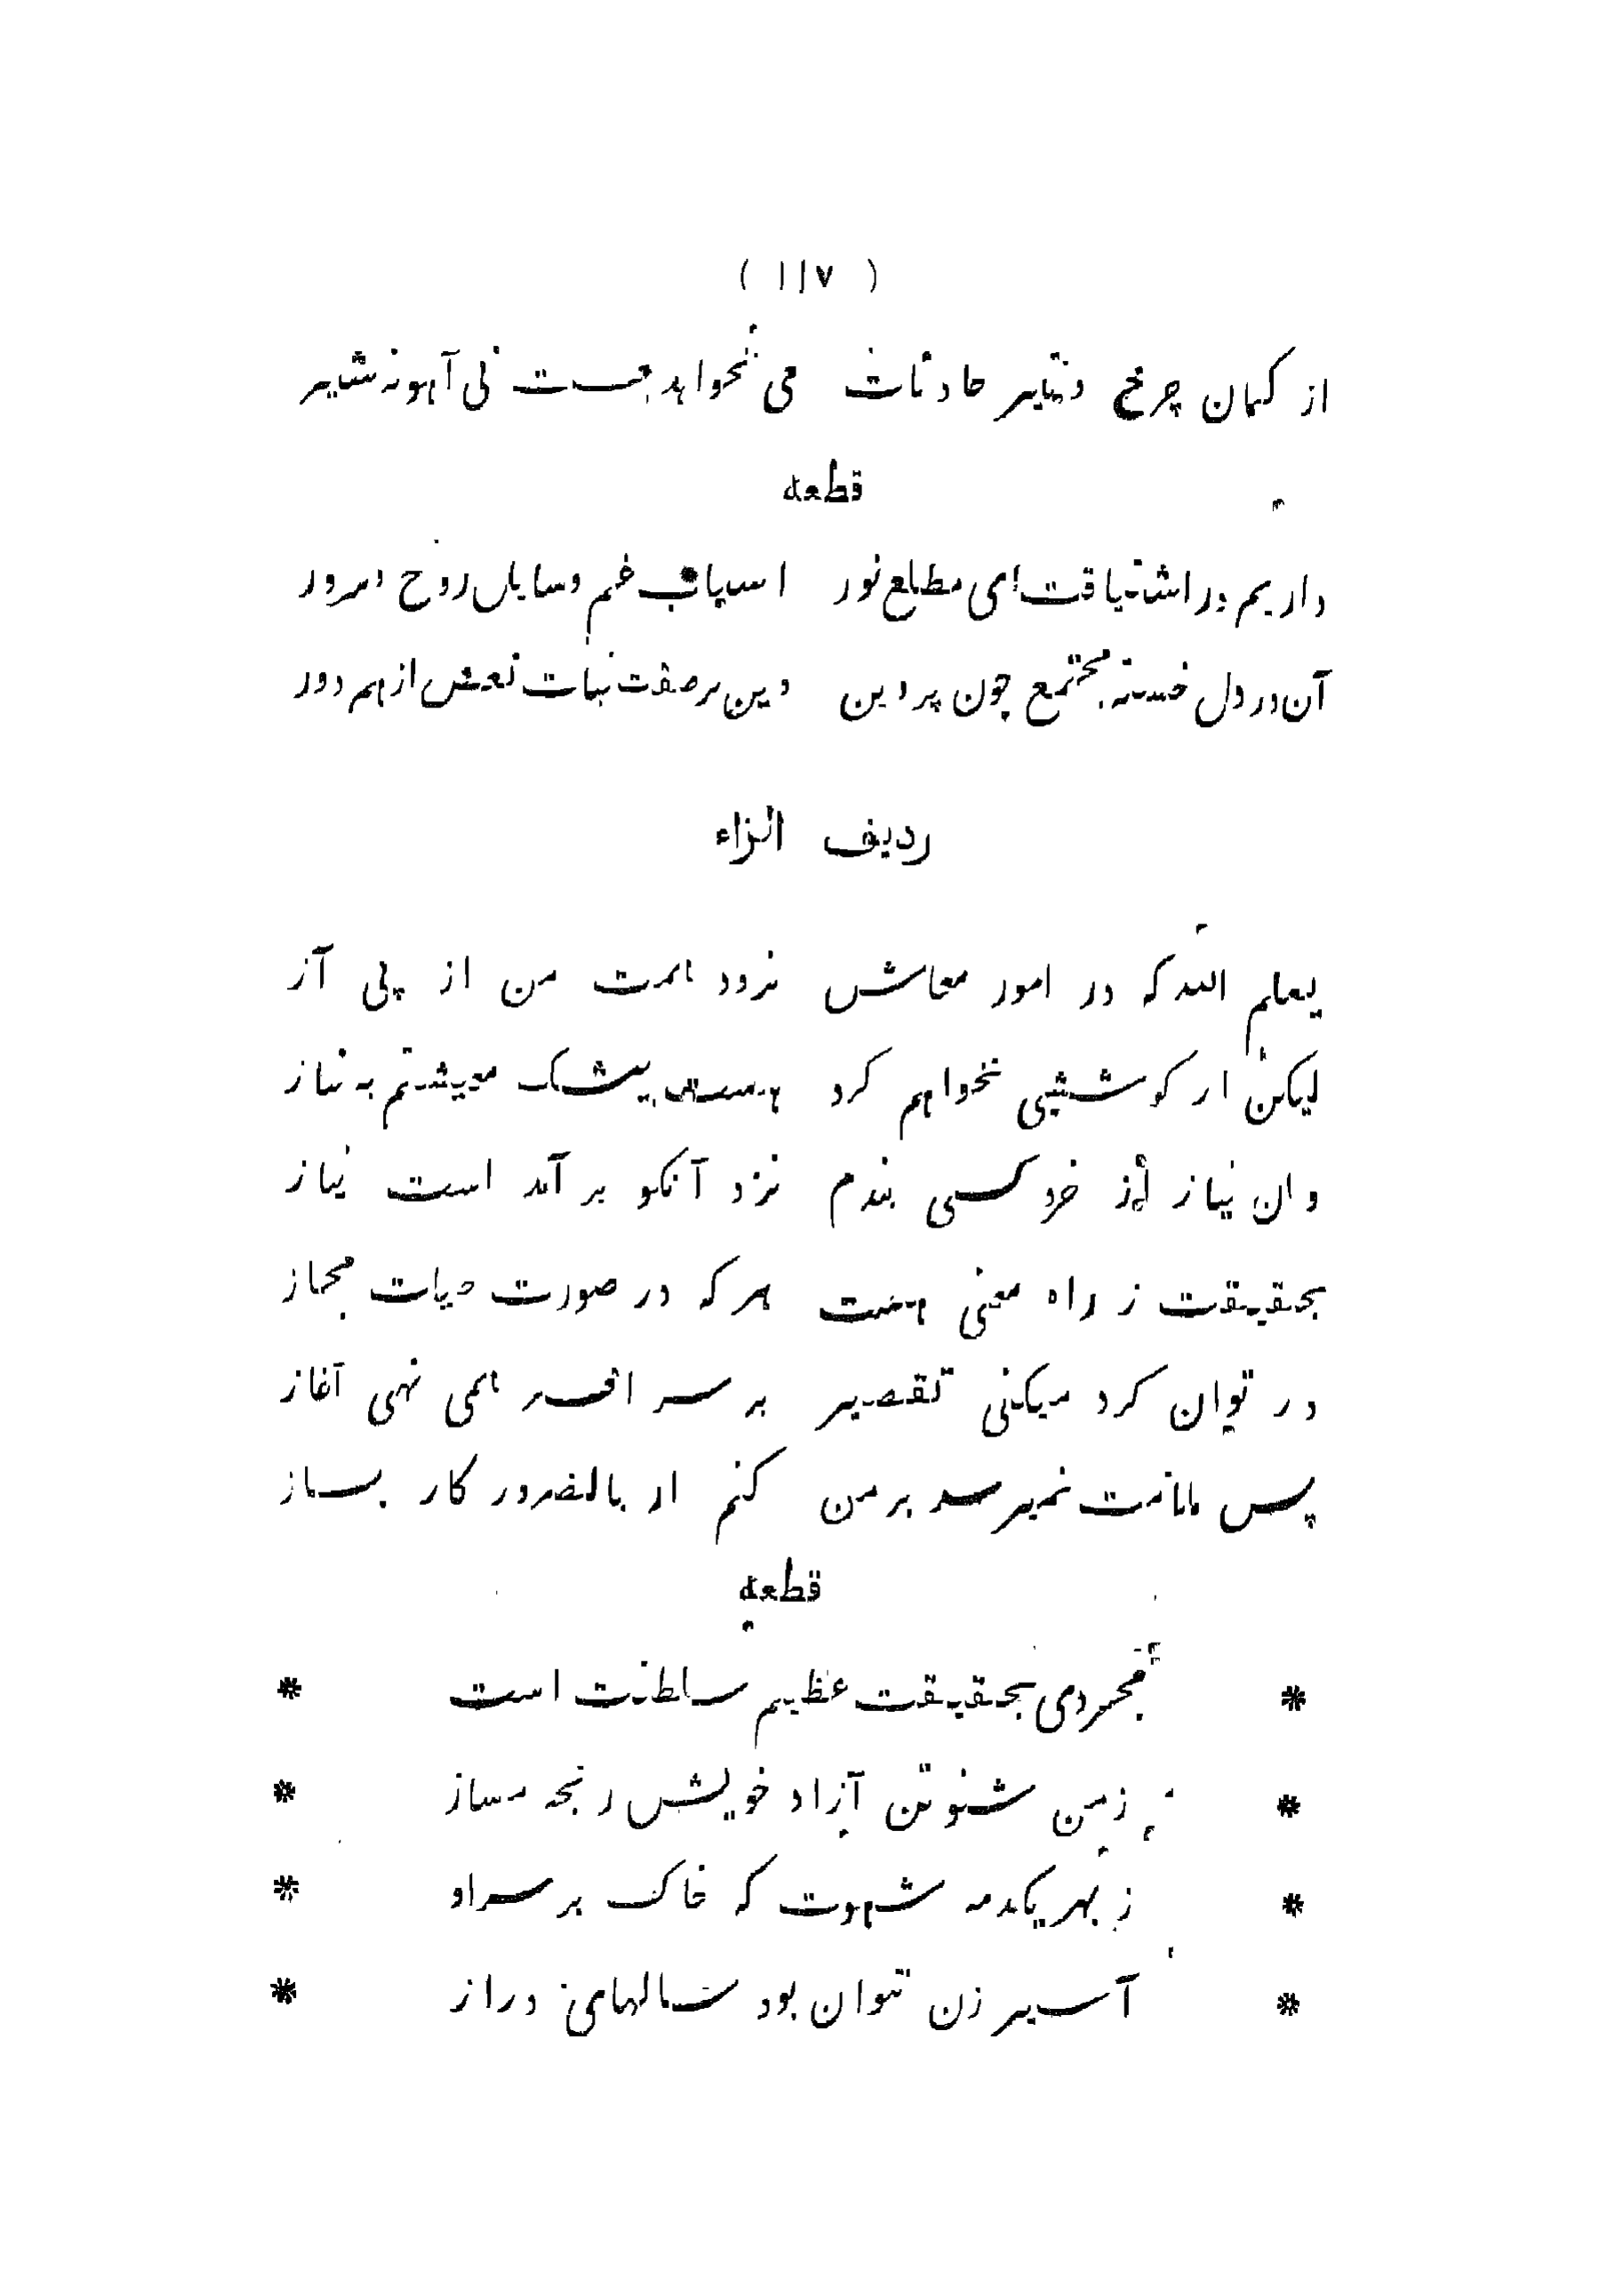 ( ۱۱۷ )
از کمان چرخ و تیر حادثات می نخواهد جست نی آهو نه شیر
قطعه
داریم در اشتیاقت ای مطلع نور اسباب غم و سایل روح و سرور
آن در دل خسته مجتمع چون پروین وین بر صفت نبات نعش از هم دور
ردیف الزاء
یعلم الله که در امور معاش نرود همت من از پی آز
لیکن ار کوششی نخواهم کرد هست بیشک معیشتم به نیاز
وان نیاز از خرد کسی بندم نزد آنکو بر آمد است نیاز
بحقیقت ز راه معنی هست هر که در صورت حیات مجاز
در توان کرد میکنی تقصیر بر سر افسر همی نهی آغاز
پس ملامت نمیرسد بر من کنم ار بالضرور کار بساز
قطعه
* مجردی بحقیقت عظیم سلطنت است *
* ز من شنو تن آزاد خویش رنجه مساز *
* ز بهر یکدمه شهوت که خاک بر سر او *
* آسیر زن نتوان بود سالهای دراز *